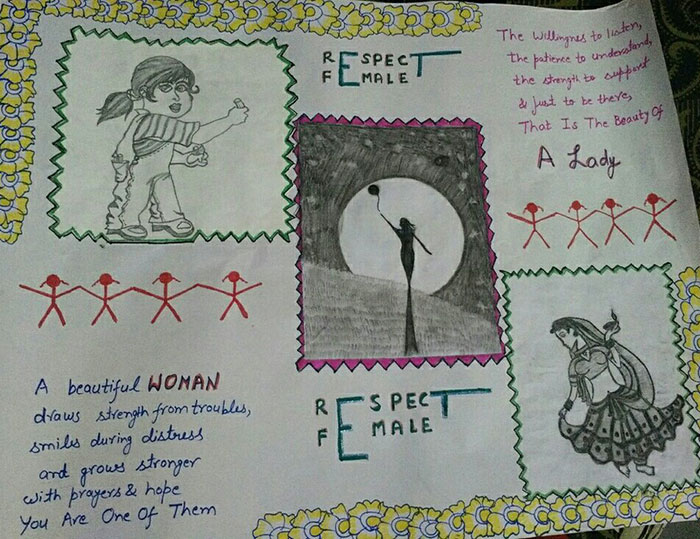 RESPECT
FEMALE
The Willingnes to listen,
the patience to understand,
the strength to support
& just to be there,
That Is The Beauty Of
A Lady
A beautiful WOMAN
draws strength from troubles,
smiles during distress
and grows stronger
with prayers & hope
You Are One Of Them
RESPECT
FEMALE